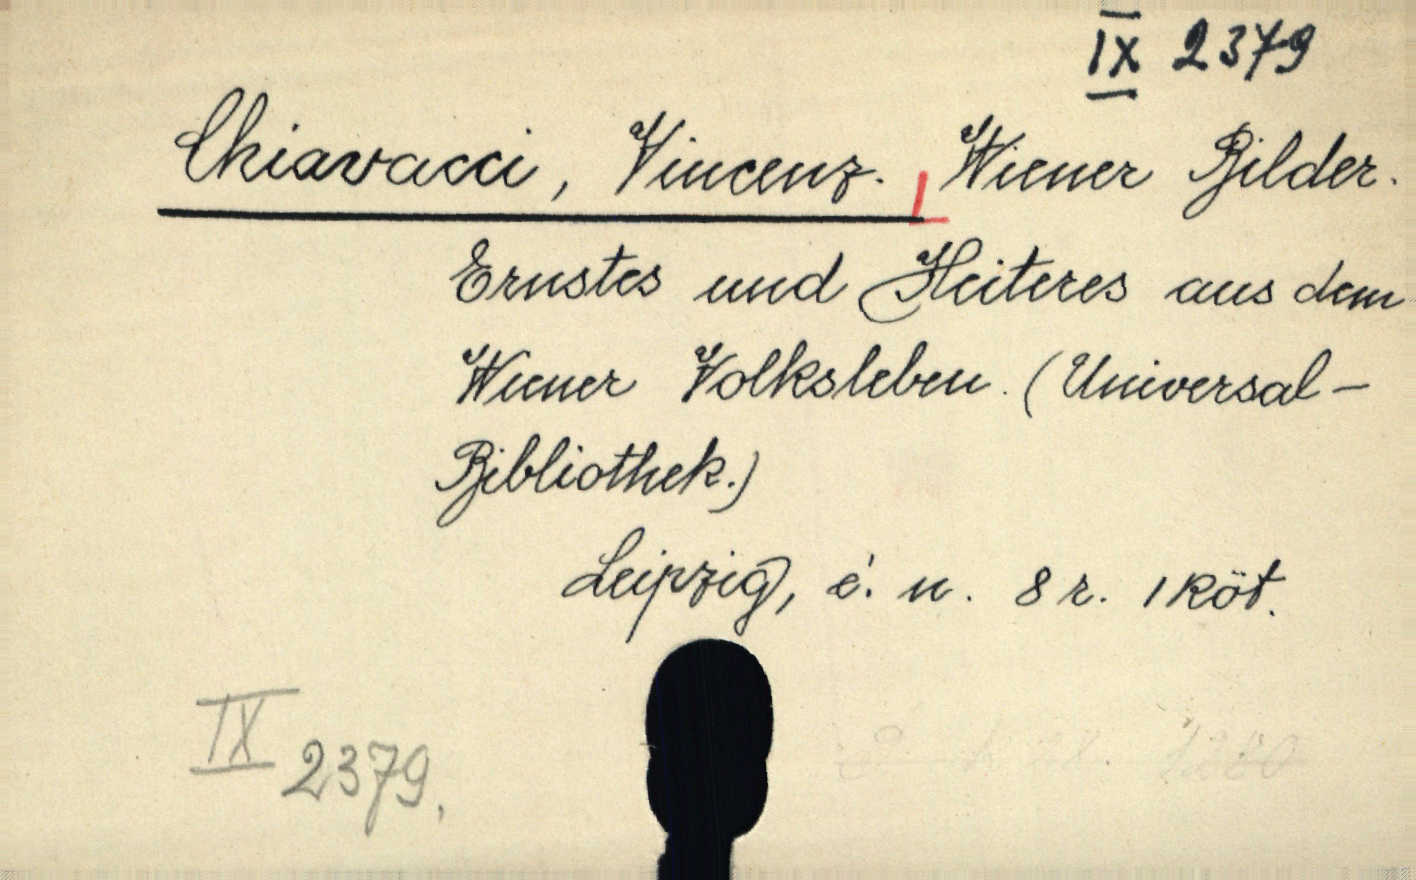 IX 2379
Chiavacci, Vincenz. Wiener Bilder.
Ernstes und Heiteres aus dem
Wiener Volksleben. (Universal-
Bibliothek.)
Leipzig, é. n. 8 r. 1 köt.
IX 2379.